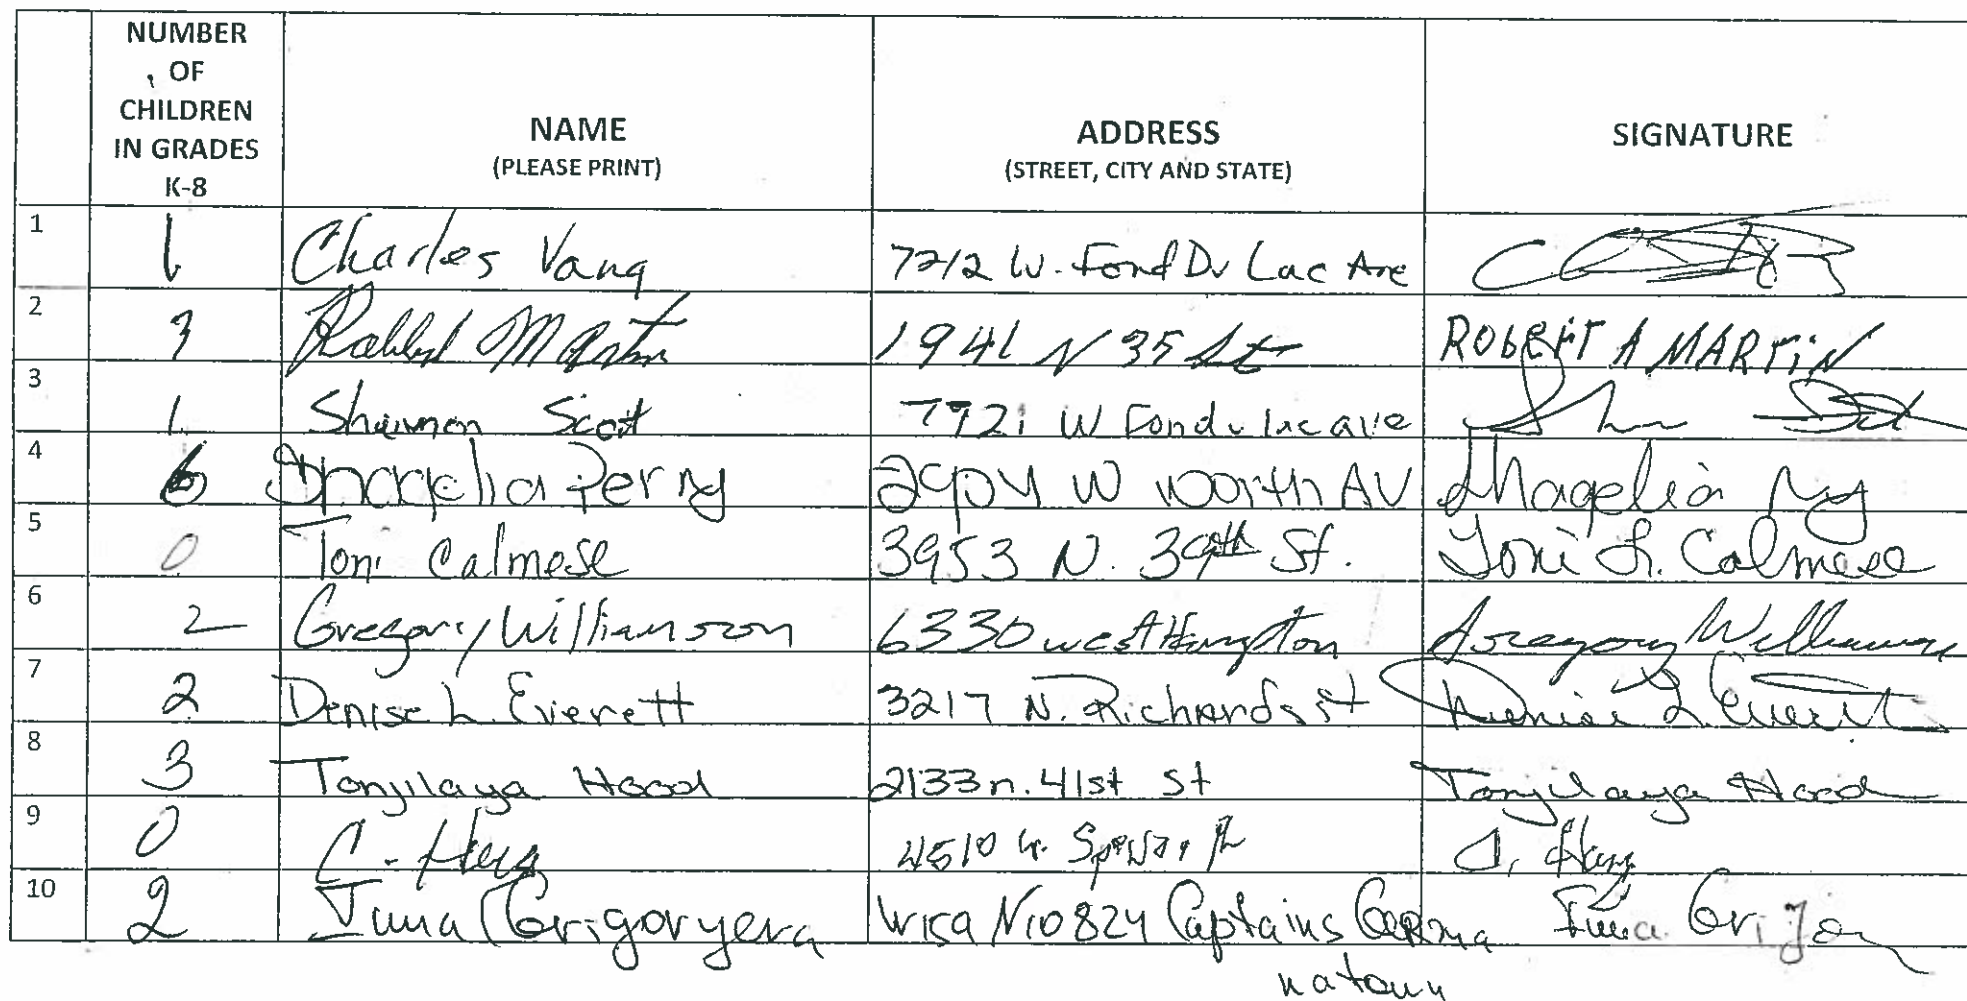 NUMBER OF CHILDREN IN GRADES K-8 NAME (PLEASE PRINT) ADDRESS (STREET, CITY AND STATE) SIGNATURE
1 1 Charles Vang 7212 W. Fond Du Lac Ave
2 3 Martin 1941 N 35 St ROBERT A MARTIN
3 1 Shannon Scott 7921 W Fond u lac ave
4 6 Magelia Perry W North AV Magelia
5 0 Toni Calmese 3953 N. 39th St. Toni L. Calmese
6 2 Gregory Williamson 6330 west Hampton Gregory Williamson
7 2 Denise L. Everett 3217 N. Richards st Denise L Everett
8 3 Tonjilaya Hood 2133 n. 41st st Tonjilaya Hood
9 0 C. 4510 C.
10 2 Grigoryeva N10824 Captains